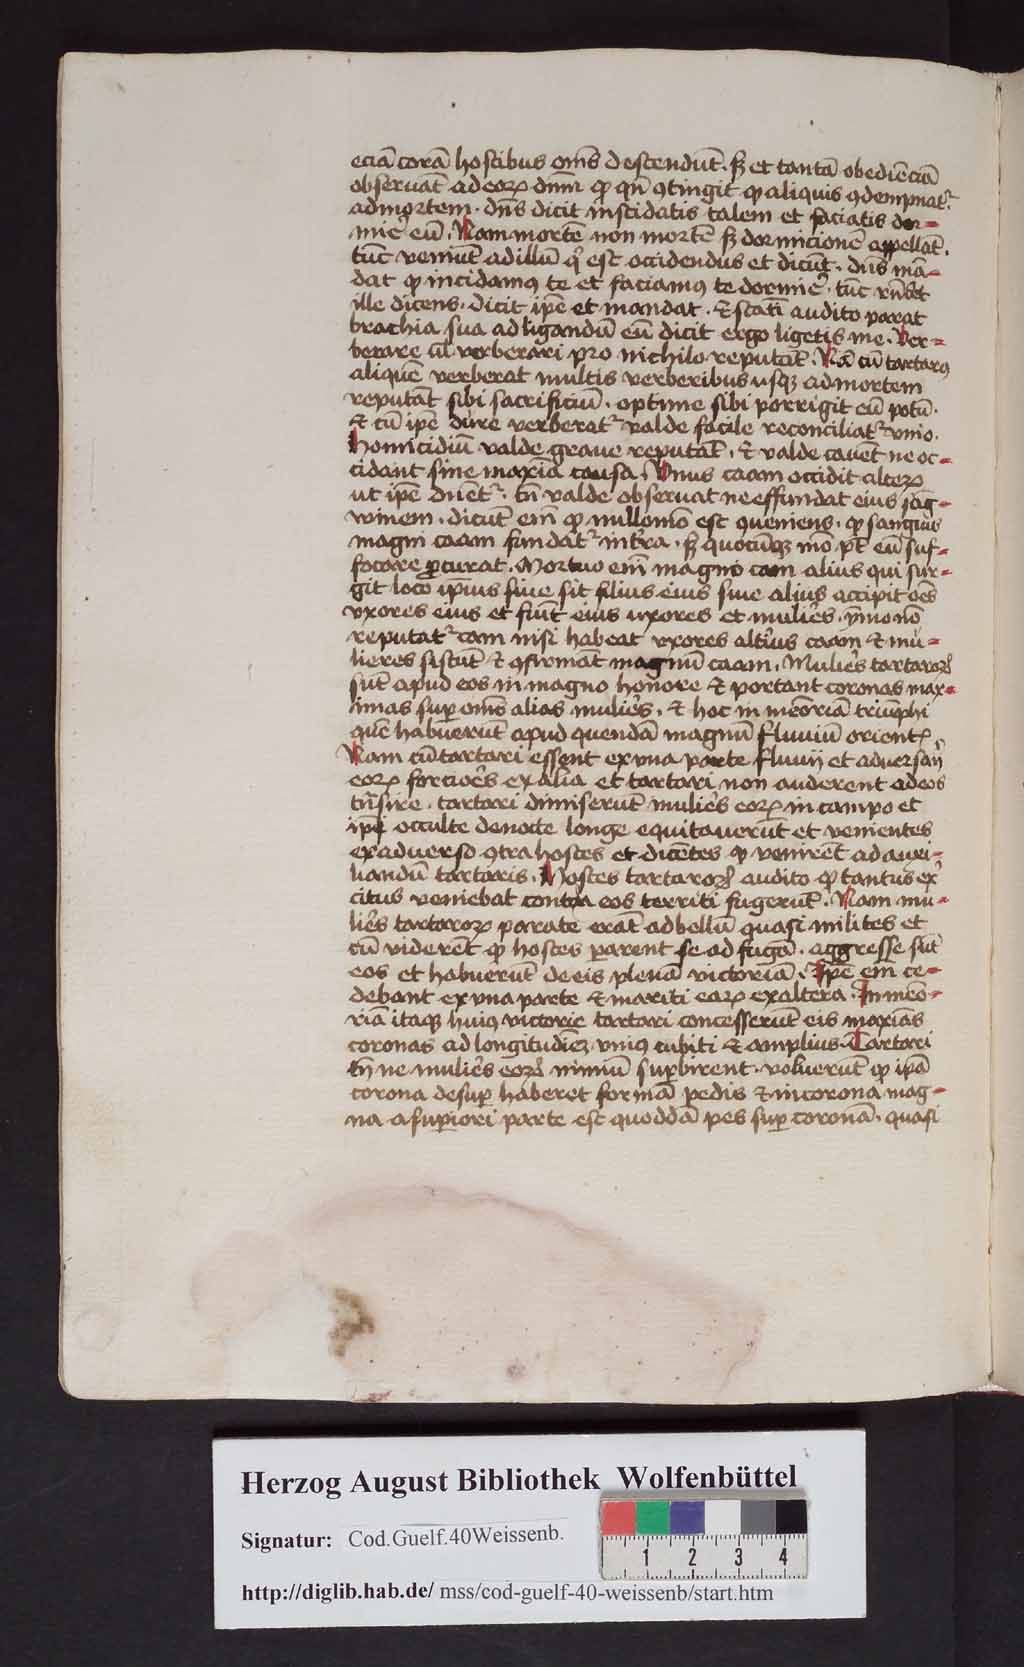 eciā corā hostibus oms̄ descendūt. sȝ et tantā obediēciā
obseruāt ad eoꝝ dnm̄ qp qn̄ ꝯtingit qp aliquis ꝯdempnat᷑
ad mortem. dn̄s dicit inscidatis talem et faciatis dor-
mire eū. Nam mortē non mortē sȝ dormicionē appellāt.
tūc veniūt ad illū qͥ est occidendus et dicūt. dn̄s mā-
dat qp incidamꝰ te et faciamꝰ te dormir̄. tūc rn̄det
ille dicens. dicit ipē et mandat. & statī audito parat
brachia sua ad ligandū eū dicit ergo ligetis me. Ver-
berare ul̄ verberari pro nichilo reputāt. Nā cū tartarꝰ
aliquē verberat multis verberibus usqȝ ad mortem
reputāt sibi sacrificiū. optime sibi porrigit eū potū.
& cū ipē dure verberat᷑ valde facile reconciliat᷑ vino.
Homicidiū valde graue reputāt. & valde cauēt ne oc-
cidant sine maxīa causa. Vnus caam occidit alteꝝ
ut ipē dnēt᷑. tn̄ valde obseruat ne effundat eius sāg-
winem. dicūt em̄ qp nullomō est ꝯueniens. qp sanguis
magni caam fundat᷑ in terra. sȝ quocūqȝ mō pt̄ eū suf-
focare ꝓcurat. Mortuo em̄ magno caam alius qui sur-
git loco ipīus siue sit filius eius siue alius accipit oēs
vxores eius et fiūt eius uxores et mulier̄s. ymo nō
reputat᷑ cam nisi habeat vxores altius caam & mu-
lieres sistūt & ꝯfirmāt magnū caam. Mulier̄s tartaroꝝ
sūt apud eos in magno honore & portant coronas max-
imas sup̄ oms̄ alias mulier̄s. & hoc in meōriā triūphi
quē habuerūt apud quendā magnū fluuiū orient̄.
Nam cū tartari essent ex vna parte fluuij et aduersarij
eoꝝ forcior̄s ex alia et tartari non auderent ad eos
trn̄sire. tartari dimiserūt mulier̄s eoꝝ in campo et
ipī occulte de nocte longe equitauerūt et venientes
ex aduerso ꝯtra hostes et dicētes qp venirēt ad auxi-
liandū tartaris. Hostes tartaroꝝ audito qp tantus exer-
citus veniebat contra eos territi fugerūt. Nam mu-
lier̄s tartaroꝝ parate erāt ad bellū quasi milites et
cū viderēt qp hostes parent se ad fugā. aggresse sūt
eos et habuerūt de eis plenā victoriā. Ipē em̄ ce-
debant ex vna parte & mariti eaꝝ ex altera. In meō-
riā itaqȝ huiꝰ victorie tartari concesserūt eis maxīas
coronas ad longitudinē vniꝰ cubiti & amplius. Tartari
tn̄ ne mulier̄s eoꝝ nimiū sup̄birent. voluerūt qp ipā
corona desup̄ haberet formā pedis & in corona mag-
na a sup̄iori parte est quoddā pes sup̄ coronā. quasi
Herzog August Bibliothek Wolfenbüttel
Signatur: Cod.Guelf.40Weissenb.
1 2 3 4
http://diglib.hab.de/ mss/cod-guelf-40-weissenb/start.htm